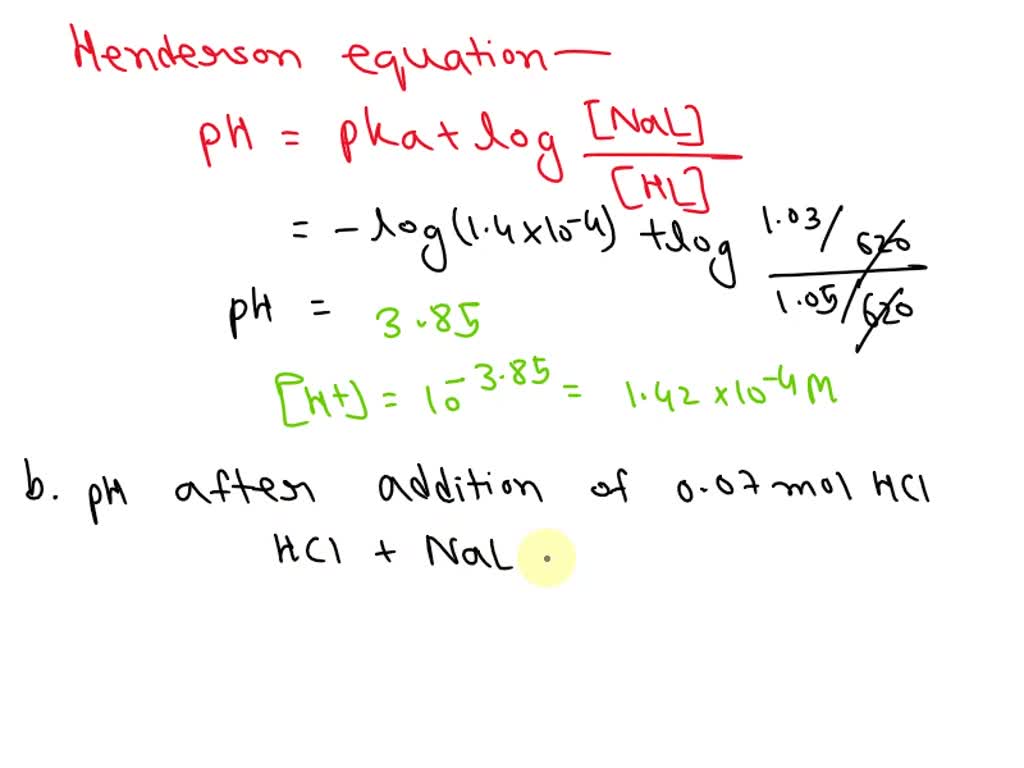 Henderson equation—
pH = pka + log [NaL] / [HL]
= - log (1.4×10-4) + log 1.03/620 / 1.05/620
pH = 3.85
[H+] = 10-3.85 = 1.42×10-4 M
b. pH after addition of 0.07 mol HCl
HCl + NaL